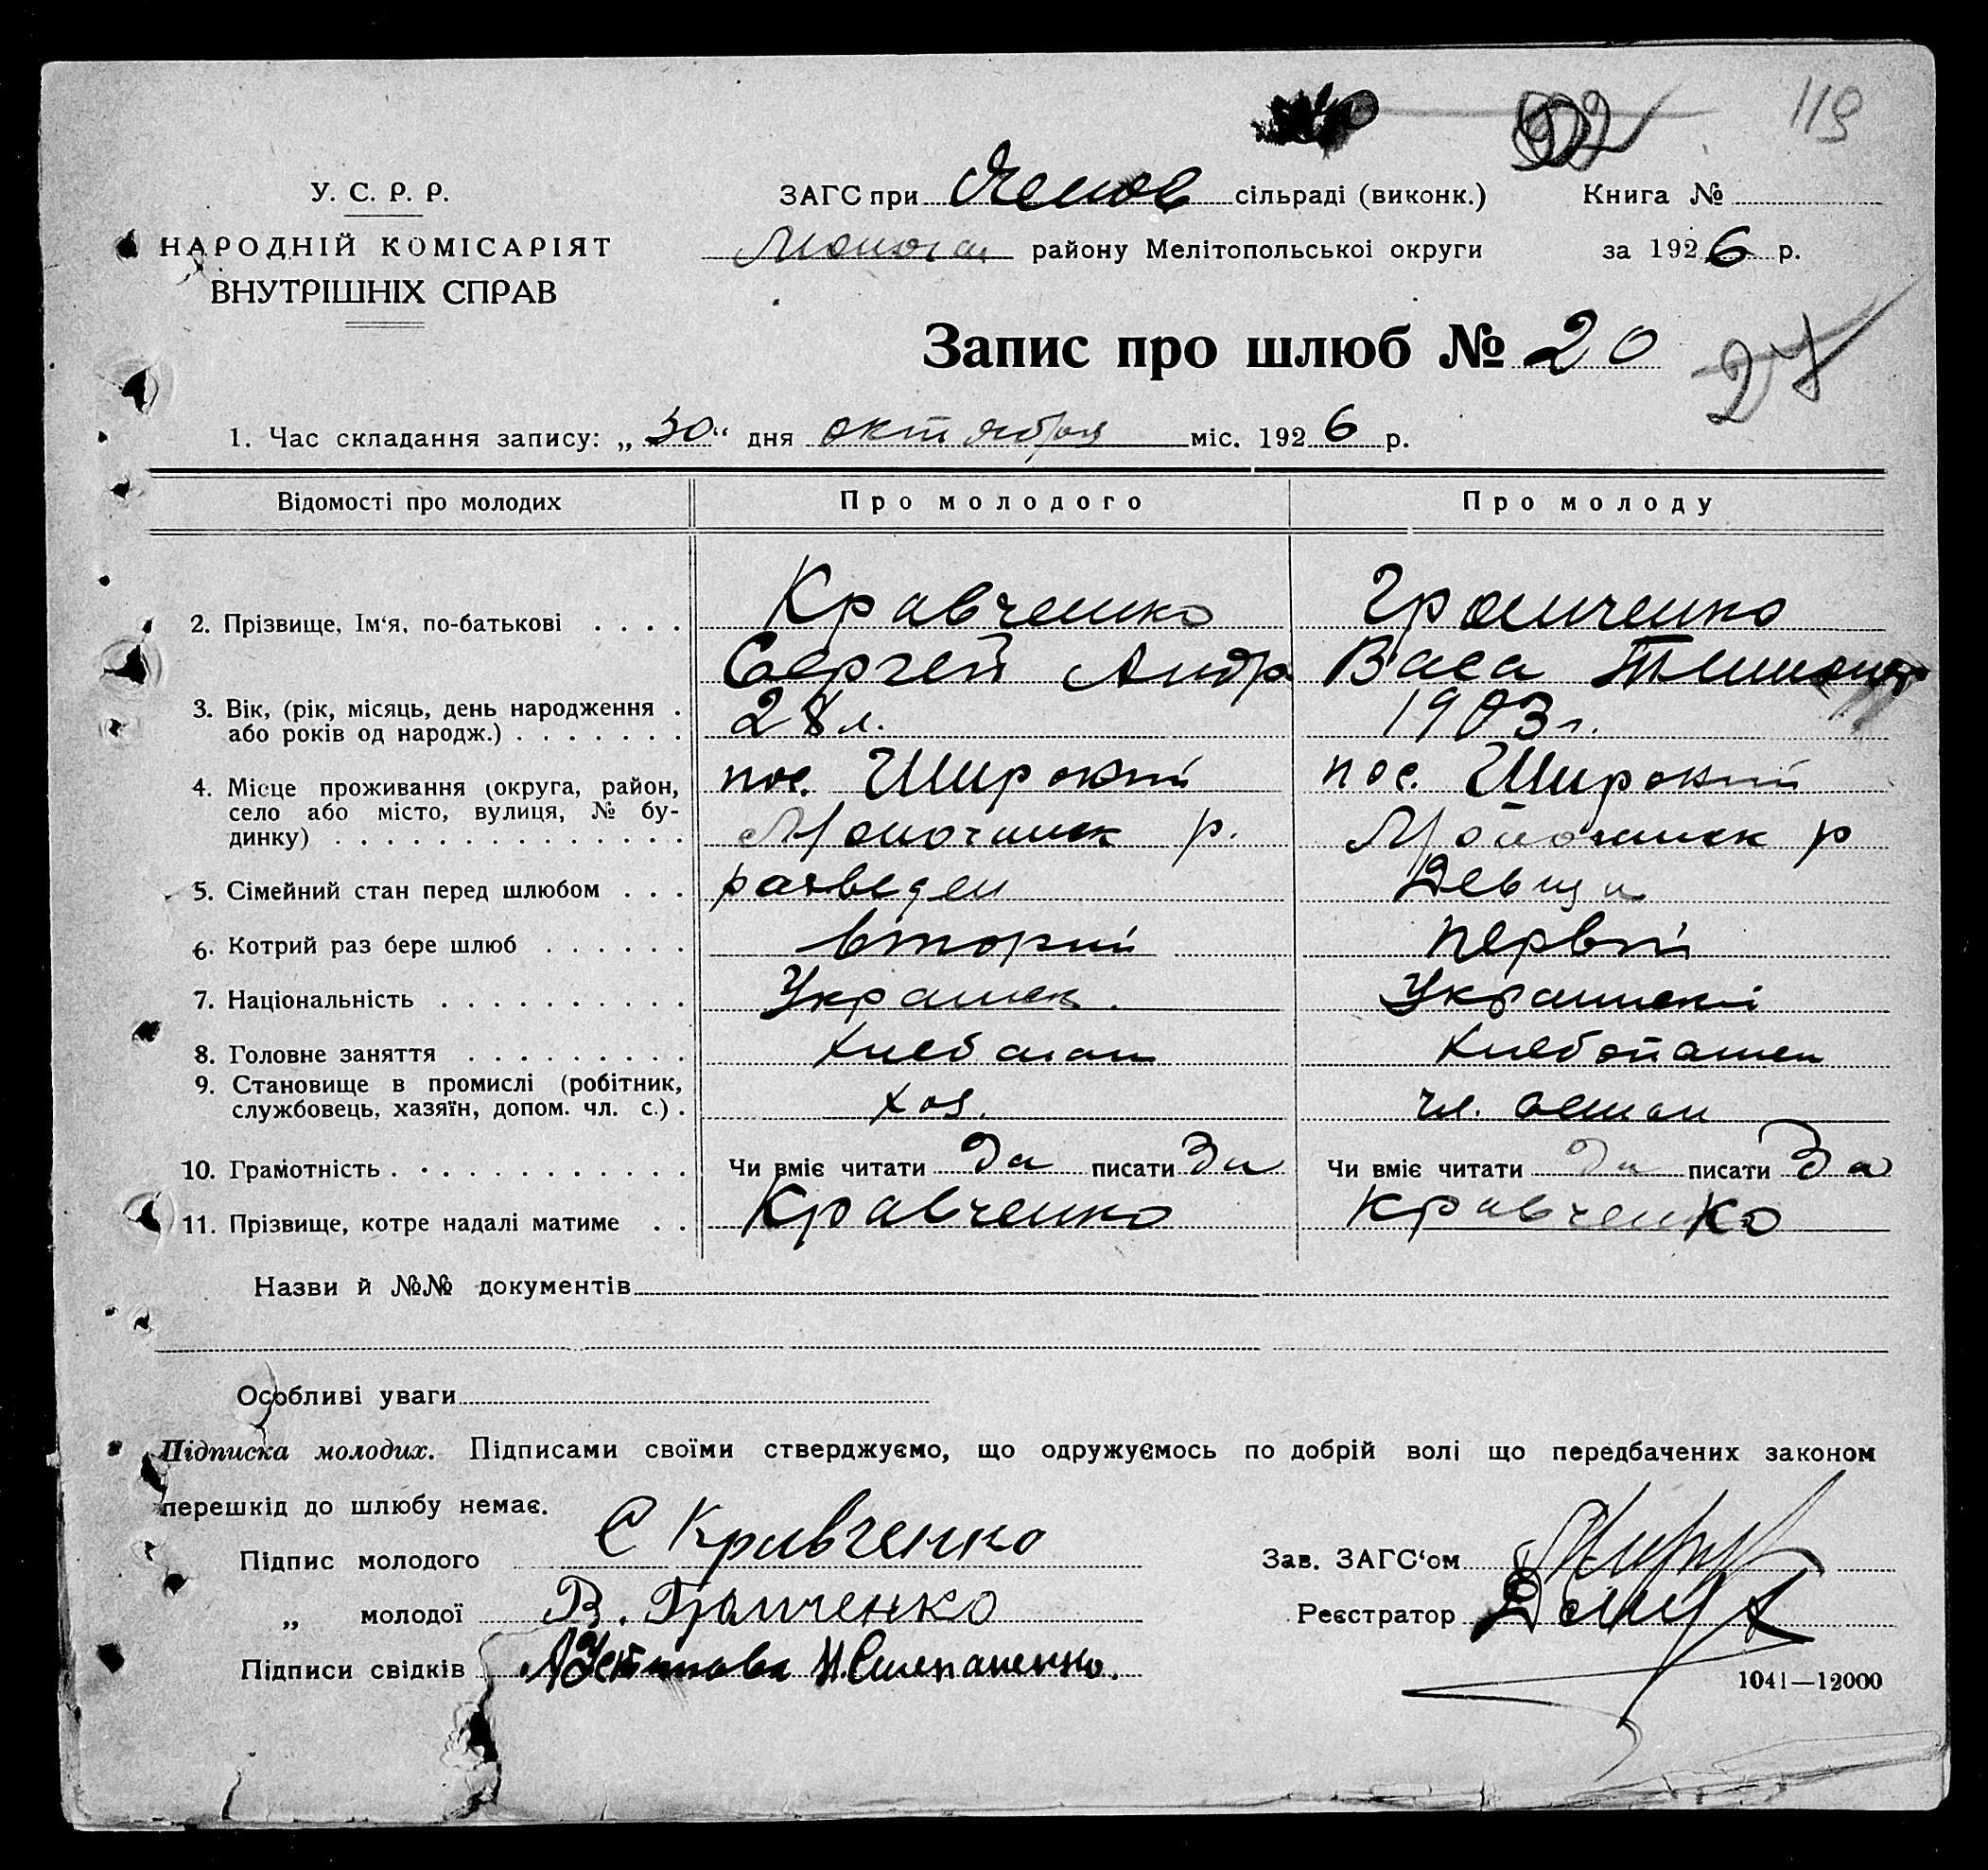 119
У. С. Р. Р.
НАРОДНІЙ КОМІСАРІЯТ
ВНУТРІШНІХ СПРАВ
ЗАГС при сільраді (виконк.) Книга №
району Мелітопольської округи за 1926 р.
Запис про шлюб № 20
27
1. Час складання запису: „30“ дня октября міс. 1926 р.
Відомості про молодих Про молодого Про молоду
2. Прізвище, Ім‘я, по-батькові Кравченко Гранченко
Сергей Андр Васа
3. Вік, (рік, місяць, день народження 28 л. 1903 г.
або років од народж.)
4. Місце проживання (округа, район, пос. Широкий пос. Широкий
село або місто, вулиця, № бу- р. р
динку)
5. Сімейний стан перед шлюбом разведен Девица
6. Котрий раз бере шлюб второй первый
7. Національність Украинск. Украинский
8. Головне заняття
9. Становище в промислі (робітник, хоз. чл. семьи
службовець, хазяїн, допом. чл. с.)
10. Грамотність Чи вміє читати Да писати Да Чи вміє читати Да писати Да
11. Прізвище, котре надалі матиме Кравченко Кравченко
Назви й №№ документів
Особливі уваги
Підписка молодих. Підписами своїми стверджуємо, що одружуємось по добрій волі що передбачених законом
перешкід до шлюбу немає.
Підпис молодого С Кравченко Зав. ЗАГС‘ом
„ молодої В. Гранченко Реєстратор
Підписи свідків Н. Степаненко.
1041—12000